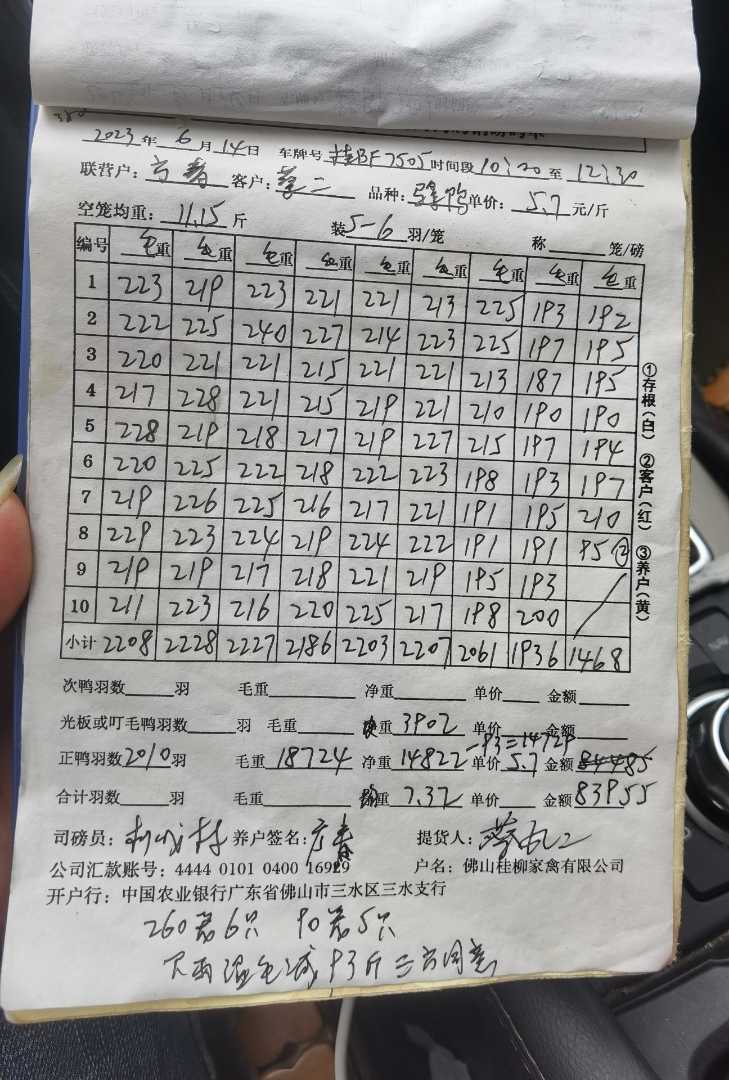 2023年 6月 14日 车牌号 桂BF7505 时间段 10:20 至 12:30
联营户: 客户: 品种: 单价: 5.7 元/斤
空笼均重: 11.15 斤 装 5-6 羽/笼 称 笼/磅
编号 毛重 毛重 毛重 毛重 毛重 毛重 毛重 毛重 毛重
1 223 219 223 221 221 213 225 193 192
2 222 225 240 227 214 223 225 197 195
3 220 221 221 215 221 221 213 187 195
4 217 228 221 215 219 221 210 190 190
5 228 219 218 217 219 227 215 197 194
6 220 225 222 218 222 223 198 193 197
7 219 226 225 216 217 221 191 195 210
8 229 223 224 219 224 222 191 191 95 ②
9 219 219 217 218 221 219 195 193
10 211 223 216 220 225 217 198 200
小计 2208 2228 2227 2186 2203 2207 2061 1936 1468
①存根(白) ②客户(红) ③养户(黄)
次鸭羽数 羽 毛重 净重 单价 金额
光板或叮毛鸭羽数 羽 毛重 重 3902 单价 金额
-93=14729
正鸭羽数 2010 羽 毛重 18724 净重 14822 单价 5.7 金额 84485
合计羽数 羽 毛重 重 7.37 单价 金额 83955
司磅员: 养户签名: 提货人:
公司汇款账号: 4444 0101 0400 16929 户名: 佛山桂柳家禽有限公司
开户行: 中国农业银行广东省佛山市三水区三水支行
260笼6只 90笼5只
下雨湿毛减93斤三方同意